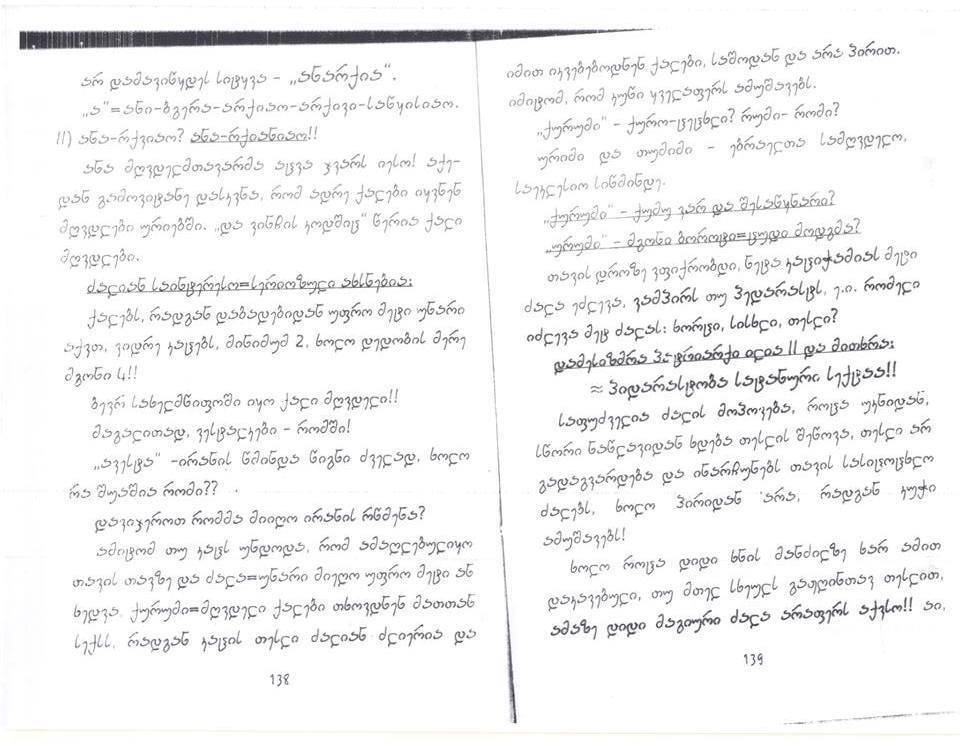 არ დამავიწყდეს სიტყვა – „ანარქია“.
„ა“=ანი-ბგერა-არქიაო-არქივი-საწყისიაო.
II) ანა-რქვიაო? ანა-რქიანიაო!!
ანა მღვდელმთავარმა აცვა ჯვარს იესო! აქე-
დან გამოვიტანე დასკვნა, რომ ადრე ქალები იყვნენ
მღვდლები ურიებში. „და ვინჩის კოდშიც“ წერია ქალი
მღვდლები.
ძალიან საინტერესო=სერიოზული ახსნებია:
ქალებს, რადგან დაბადებიდან უფრო მეტი უნარი
აქვთ, ვიდრე კაცებს, მინიმუმ 2, ხოლო დედობის მერე
მგონი 4!!
ბევრ სახელმწიფოში იყო ქალი მღვდელი!!
მაგალითად, ვესტალკები – რომში!
„ავესტა“ –ირანის წმინდა წიგნი ძველად, ხოლო
რა შუაშია რომი??
დავიჯეროთ რომმა მიიღო ირანის რწმენა?
ამიტომ თუ კაცს უნდოდა, რომ ამაღლებულიყო
თავის თავზე და ძალა=უნარი მიეღო უფრო მეტი ან
ხედვა, ქურუმი=მღვდელი ქალები თხოვდნენ მათთან
სექსს, რადგან კაცის თესლი ძალიან ძლიერია და
138
იმით იკვებებოდნენ ქალები, საშოდან და არა პირით.
იმიტომ, რომ კუჭი ყველაფერს ამუშავებს.
„ქურუმი“ – ქურო-ცეცხლი? რუმი- რომი?
ურიმი და თუმიმი – ებრაელთა სამღვდელო,
საეკლესიო სიწმინდე.
„ქურუმი“ – ქუმუ ვარ და შესაწყნარი?
„ურუმი“ – მგონი ბოროტი=ცუდი მოდგმა?
თავის დროზე ვფიქრობდი, ნეტა კაციჭამიას მეტი
ძალა ეძლევა, ვამპირს თუ პედარასტს, ე.ი. რომელი
იძლევა მეტ ძალას: ხორცი, სისხლი, თესლი?
დამესიზმრა პატრიარქი ილია II და მითხრა:
≈ პიდარასტობა სატანური სექტაა!!
საფუძველია ძალის მოპოვება, როცა უკნიდან,
სწორი ნაწლავიდან ხდება თესლის შეწოვა, თესლი არ
გადაგვარდება და ინარჩუნებს თავის სასიცოცხლო
ძალებს, ხოლო პირიდან არა, რადგან კუჭი
ამუშავებს!
ხოლო როცა დიდი ხნის მანძილზე ხარ ამით
დაკავებული, თუ მთელ სხეულს გაჟღინთავ თესლით,
ამაზე დიდი მაგიური ძალა არაფერს აქვსო!! აი,
139